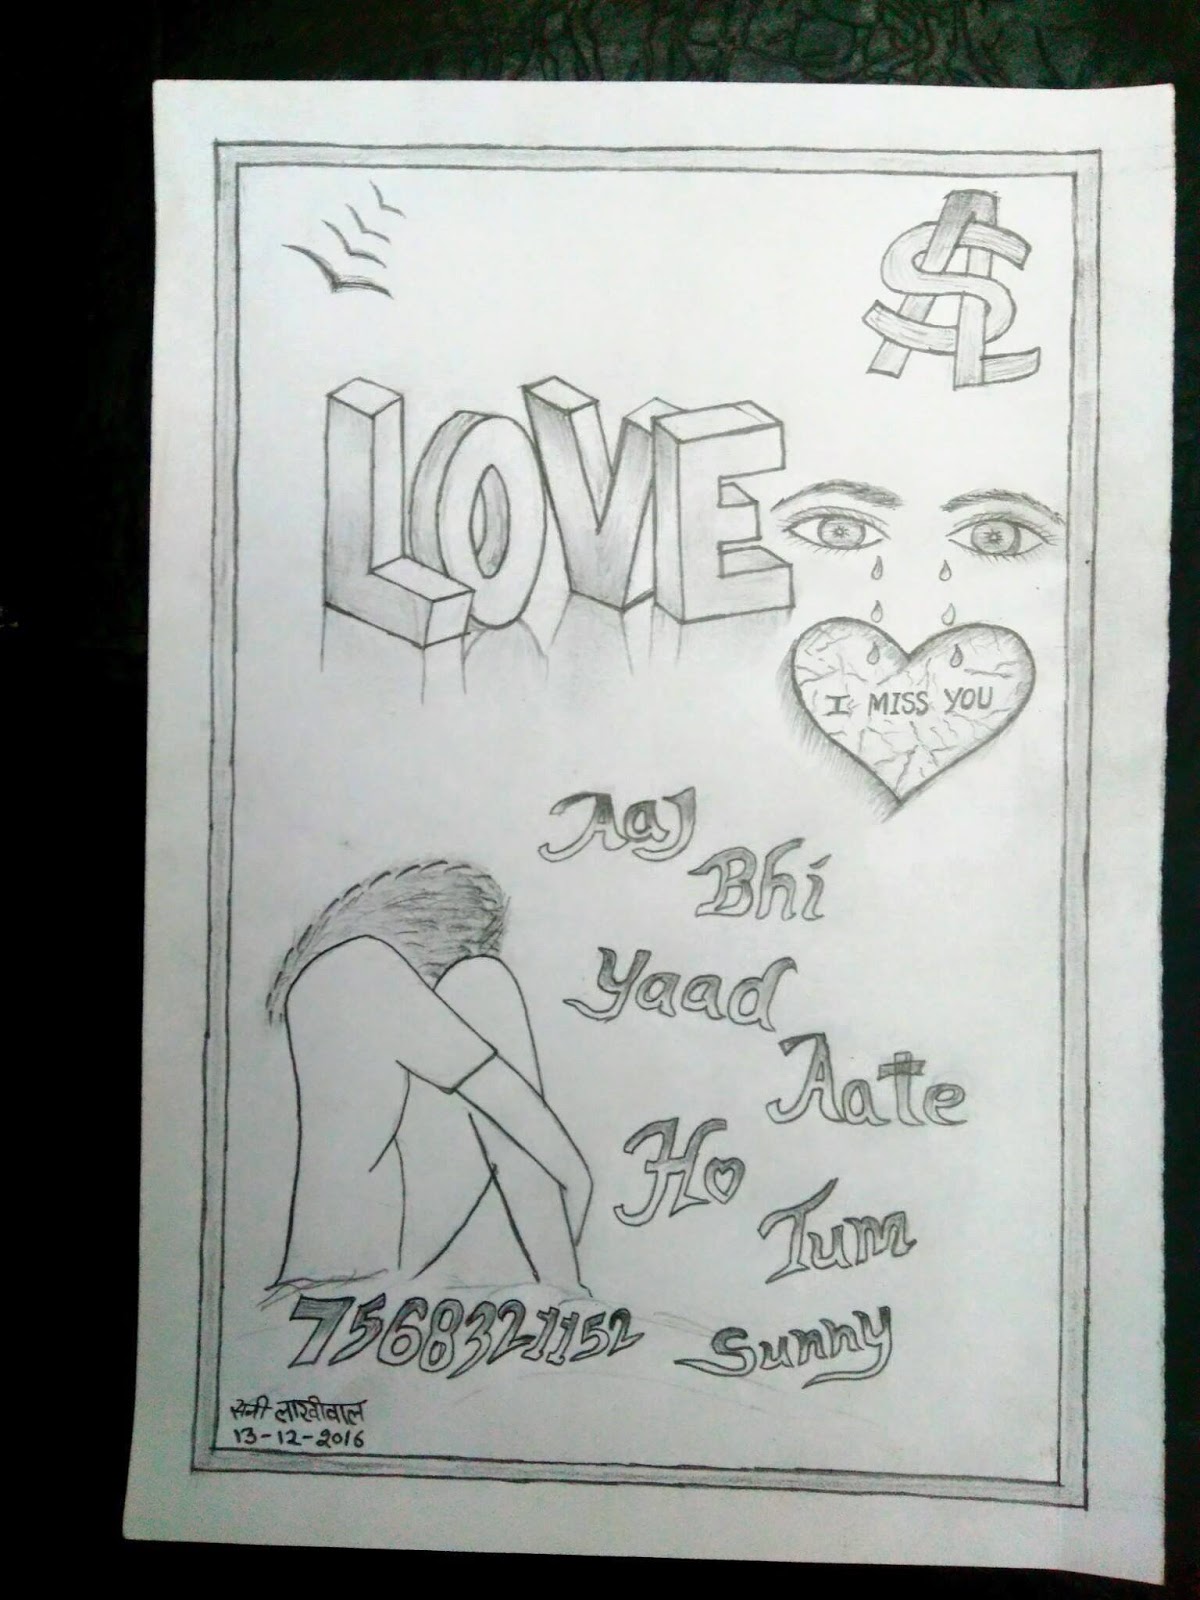 ASL
LOVE
I MISS YOU
Aaj
Bhi
Yaad
Aate
Ho
Tum
Sunny
7568321152
सनी लाखीवाल
13-12-2016